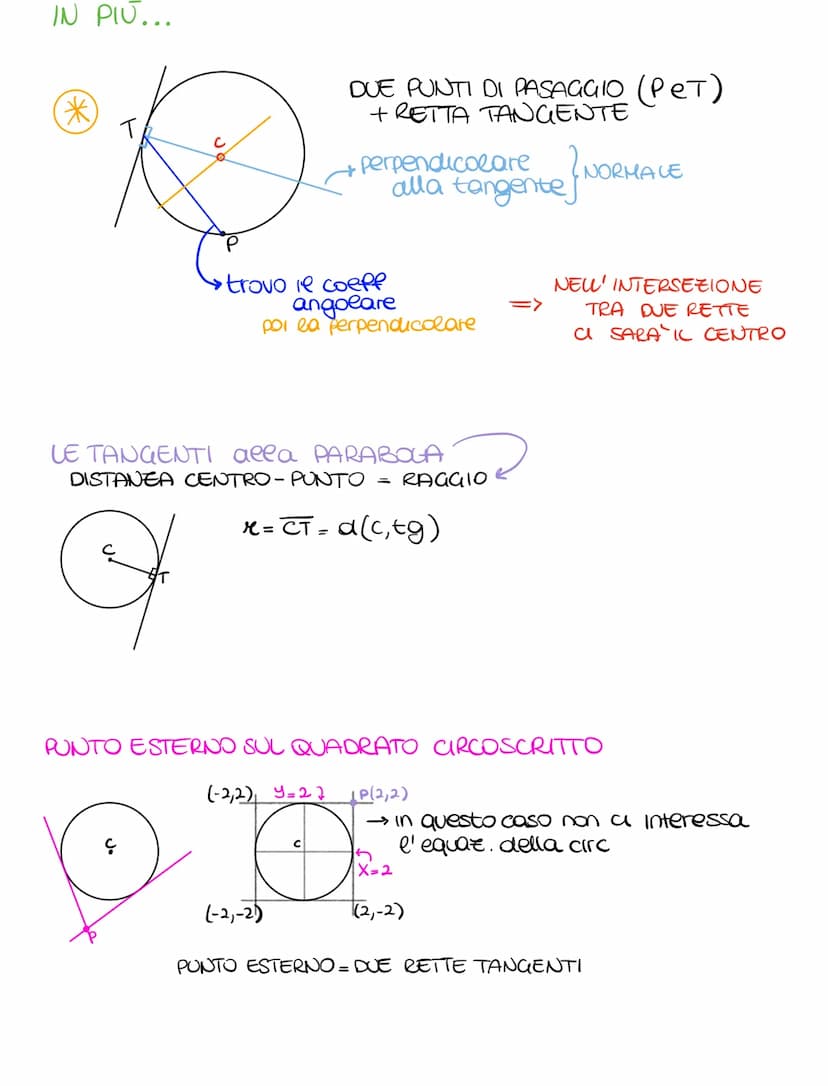 IN PIÙ...
DUE PUNTI DI PASAGGIO (P e T)
+ RETTA TANGENTE
T
C
P
perpendicolare
alla tangente } NORMALE
trovo il coeff
angolare
poi la perpendicolare
=> NELL'INTERSEZIONE
TRA DUE RETTE
CI SARA' IL CENTRO
LE TANGENTI alla PARABOLA
DISTANZA CENTRO - PUNTO = RAGGIO
r = CT = d(C,tg)
C
T
PUNTO ESTERNO SUL QUADRATO CIRCOSCRITTO
(-2,2) y=2 P(2,2)
→ in questo caso non ci interessa
l'equaz. della circ
C
C
x=2
(-2,-2) (2,-2)
P
PUNTO ESTERNO = DUE RETTE TANGENTI